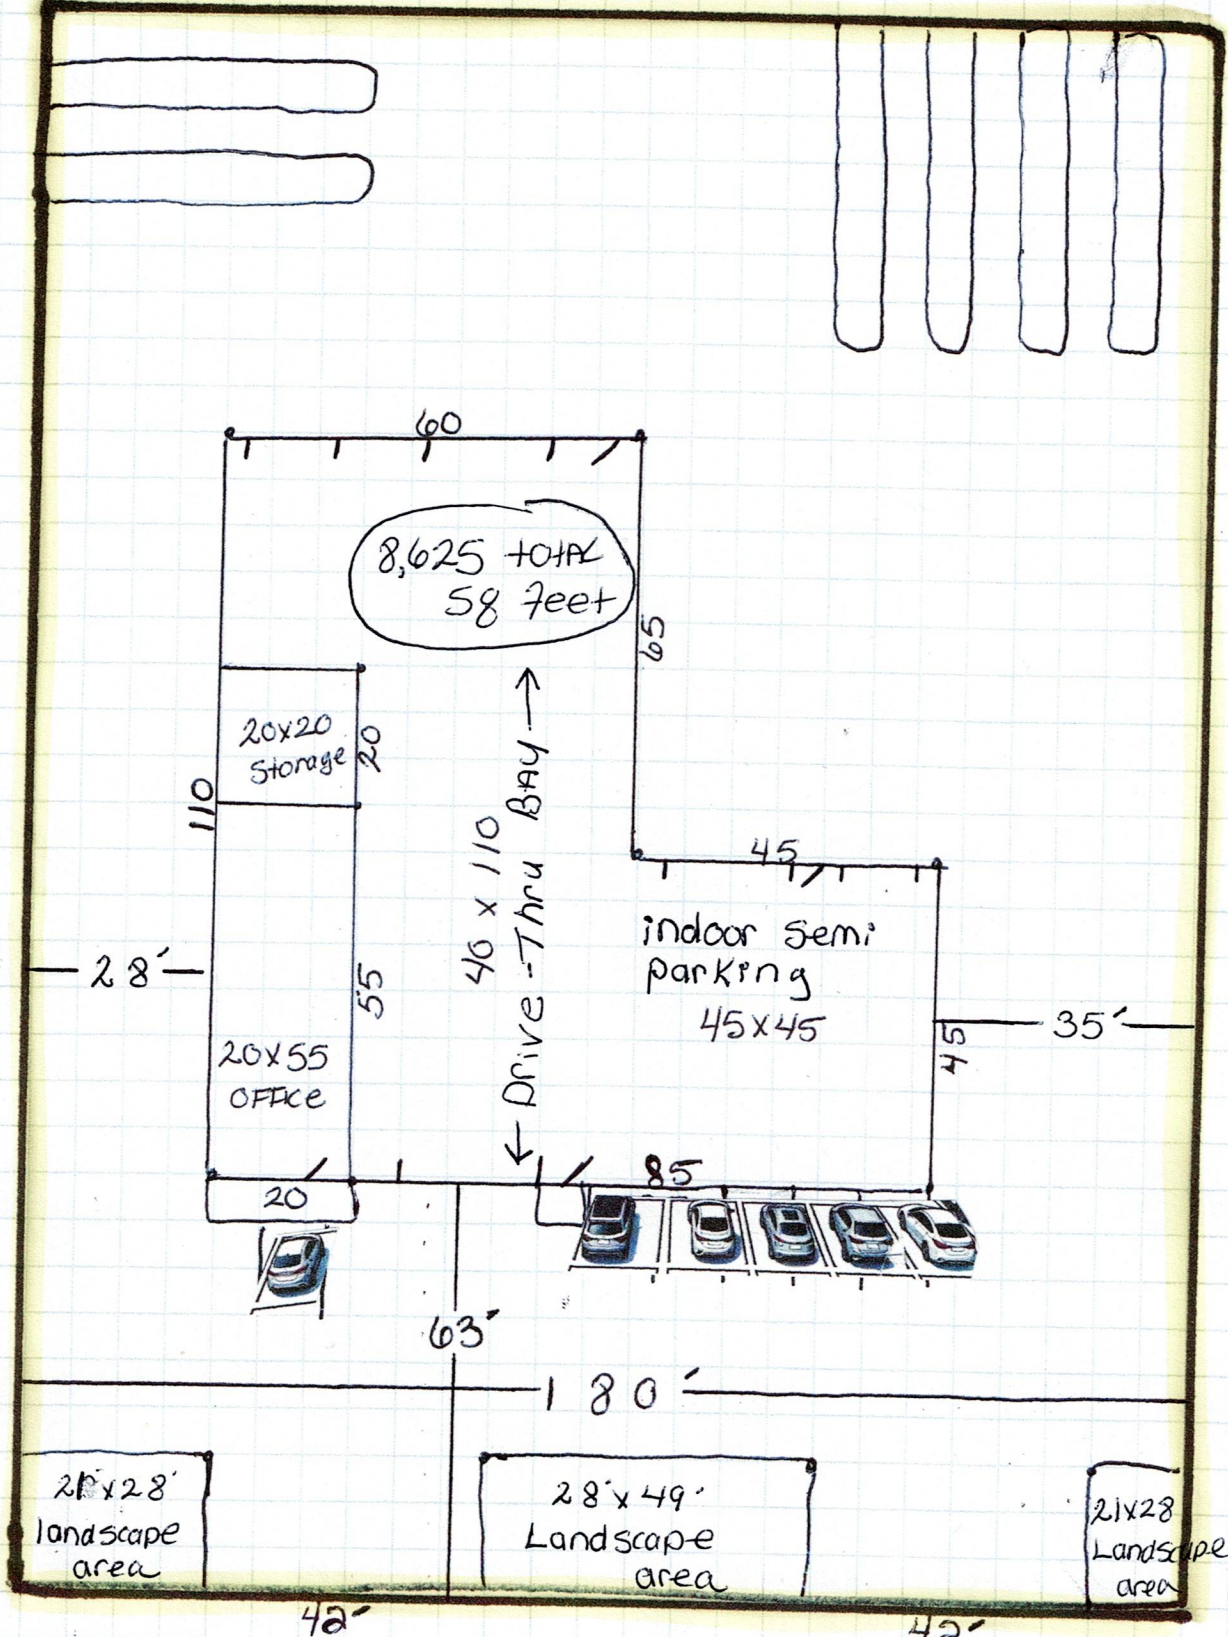 60
8,625 total
58 feet
65
20x20
Storage
20
110
40 x 110
Drive-Thru BAY
45
indoor semi
parking
45x45
28'
55
35'
45
20x55
OFFICE
20
85
63'
180'
21'x28'
landscape
area
28'x49'
Landscape
area
21x28
Landscape
area
42'
42'